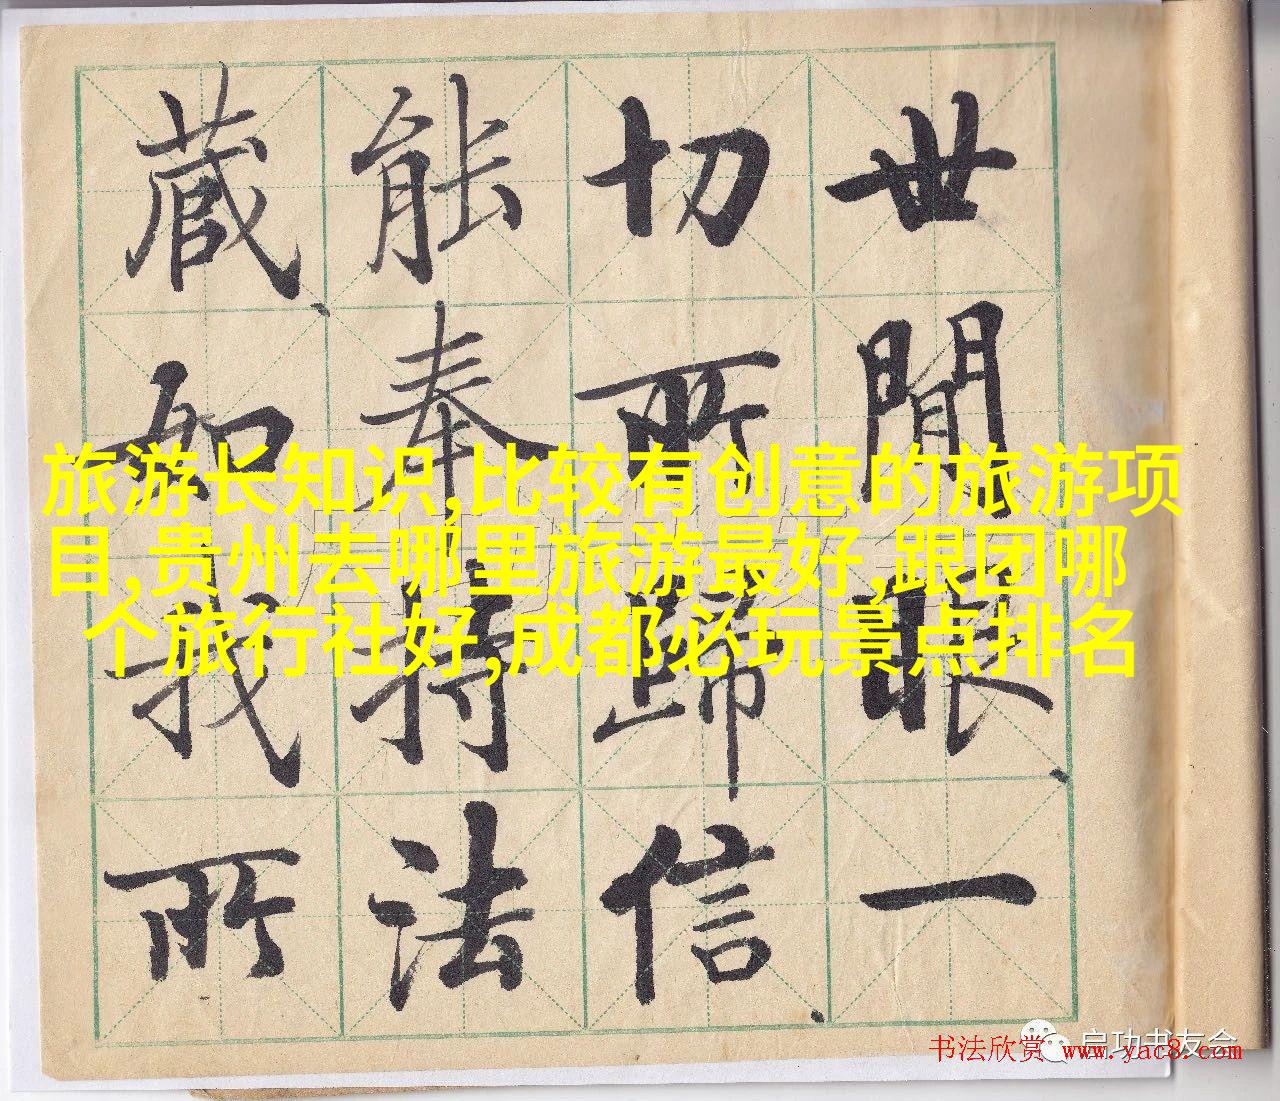 世間眼一
切所歸信
能奉持法
藏如我所
旅游长知识,比较有创意的旅游项
目,贵州去哪里旅游最好,跟团哪
个旅行社好,成都必玩景点排名
启功书友会
书法欣赏 www.yac8.com